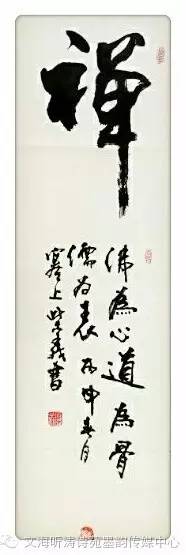 禅
佛為心道為骨
儒为表丙申春月
塞上
義書
文海听涛诗苑墨韵传媒中心